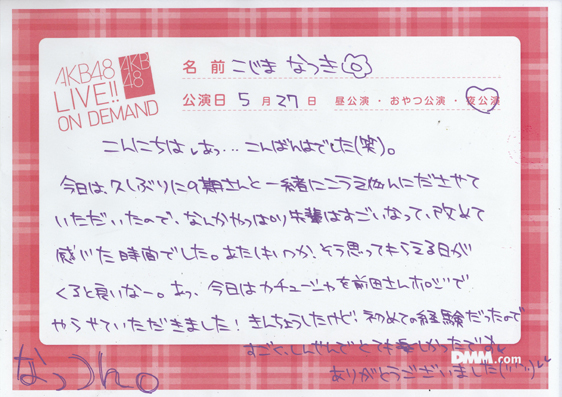 AKB48
LIVE!!
ON DEMAND
AKB
48
名前 こじま なつき
公演日 5月27日 昼公演・おやつ公演・夜公演
こんにちは、あっ…こんばんはでした(笑)。
今日は、久しぶりに9期さんと一緒に公演にださせて
いただいたので、なんかやっぱり先輩はすごいなって、改めて
感じた時間でした。わたしもいつか、そう思ってもらえる日が
くると良いなー。あっ、今日はカチューシャを前田さんポジで
やらせていただきました!きんちょうしたけど、初めての経験だったので
すごく、しんせんでとても楽しかったです
ありがとうございました
なっつん。
DMM.com